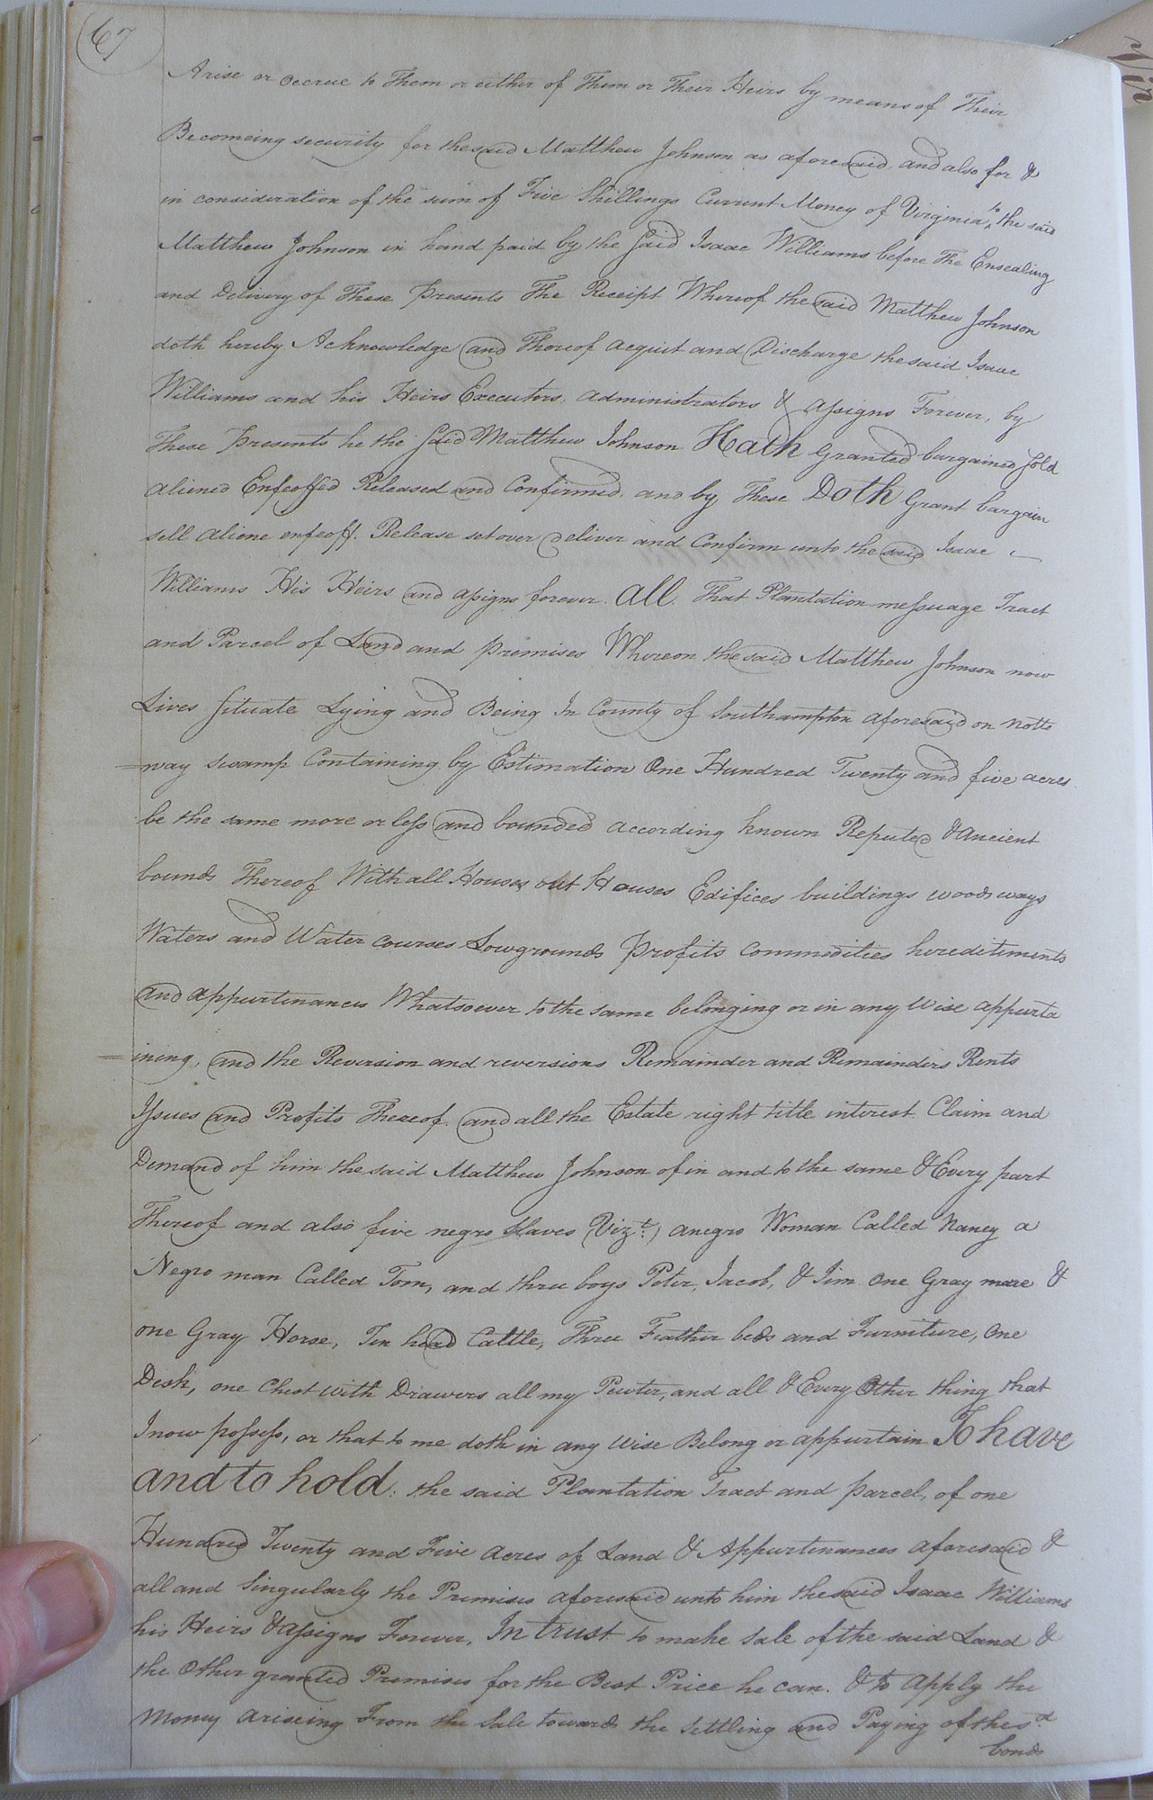 67
Arise or accrue to Them or either of Them or Their Heirs by means of Their
Becomeing security for the said Matthew Johnson as aforesaid and also for &
in consideration of the sum of Five Shillings Current Money of Virginia to the said
Matthew Johnson in hand paid by the Said Isaac Williams before The Ensealing
and Delivery of These Presents The Receipt Whereof the said Matthew Johnson
doth hereby Acknowledge and Thereof acquit and Discharge the said Isaac
Williams and his Heirs Executors, administrators & assigns Forever, by
These Presents he the Said Matthew Johnson Hath Granted bargained Sold
aliened Enfeoffed Released and Confirmed, and by These Doth Grant bargain
sell aliene enfeoff. Release set over deliver and Confirm unto the said Isaac
Williams His Heirs and assigns forever. all. That Plantation messuage Tract
and Parcel of Land and premises Whereon the said Matthew Johnson now
Lives Situate Lying and Being In County of Southampton aforesaid on notto
=way swamp Containing by Estimation One Hundred Twenty and five acres
be the same more or less and bounded according known Reputed & Ancient
bounds Thereof With all Houses out Houses Edifices buildings woods ways
Waters and Water courses Lowgrounds Profits commodities heredetiments
and appurtinances Whatsoever to the same belonging or in any wise appurta
=ining, and the Reversion and reversions Remainder and Remainders Rents
Issues and Profits Thereof. and all the Estate right title interest Claim and
Demand of him the said Matthew Johnson of in and to the same & Every part
Thereof and also five negro slaves (Vizt:) a negro Woman Called Nancy a
Negro man Called Tom, and three boys Peter, Jacob, & Jim One Gray mare &
one Gray Horse, Ten head Cattle, Three Feather beds and Furniture, One
Desk, one Chest with Drawers all my Pewter, and all & Every Other thing that
I now possess, or that to me doth in any wise Belong or appurtain To have
and to hold: the said Plantation Tract and parcel, of one
Hundred Twenty and Five acres of Land & Appurtenances aforesaid &
all and Singularly the Premises aforesaid unto him the said Isaac Williams
his Heirs & assigns Forever, In trust to make Sale of the said Land &
the Other granted Premises for the Best Price he can. & to apply the
Money ariseing From the Sale towards the settling and Paying of the sd
bonds